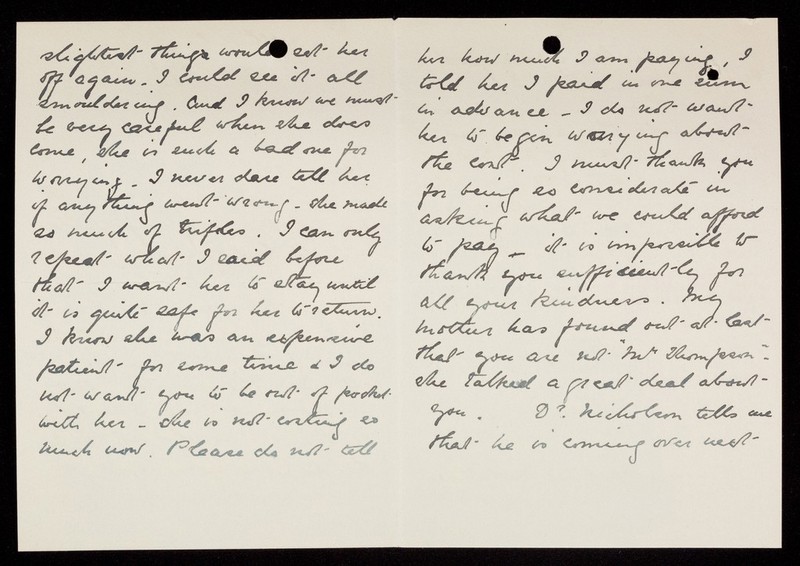 slightest things would set her
off again. I could see it all
smouldering. And I know we must
be very careful when she does
come, she is such a bad one for
worrying. I never dare tell her
if anything went wrong - she made
so much of trifles. I can only
repeat what I said before
that I want her to stay until
it is quite safe for her to return.
I know she was an expensive
patient for some time & I do
not want you to be out of pocket
with her - she is not costing so
much now. Please do not tell
her how much I am paying, I
told her I paid in one sum
in advance - I do not want
her to begin worrying about
the cost. I must thank you
for being so considerate in
asking what we could afford
to pay - it is impossible to
thank you sufficiently for
all your kindness. My
mother has found out at last
that you are not "Mr Thompson".
she talked a great deal about
you. Dr. Nicholson tells me
that he is coming over next